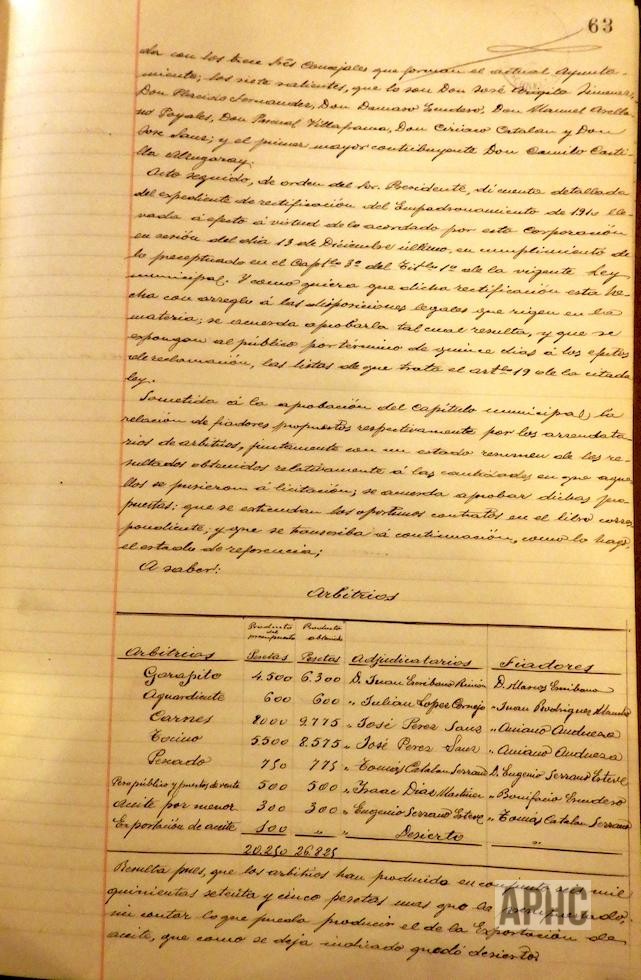 63
da con los trece Sres Concejales que forman el actual Ayunta-
miento; los siete salientes, que lo son Don José Jimenez,
Don Placido Fernandez, Don Damaso Don Manuel Arella-
no Poyales, Don Pascual Villafranca, Don Ciriaco Catalan y Don
Jose Sanz; y el primer mayor contribuyente Don Camilo Casti-
lla
Acto seguido, de orden del Sr. Presidente, dí cuenta detallada
del expediente de rectificación del Empadronamiento de 1910 lle-
vada á efecto á virtud de lo acordado por esta Corporación
en sesión del dia 13 de Diciembre último, en cumplimiento de
lo preceptuado en el Captlo 3º del Titlo 1º de la vigente Ley
municipal. Y como quiera que dicha rectificación esta he-
cha con arreglo á las disposiciones legales que rigen en la
materia; se acuerda aprobarla tal cual resulta, y que se
expongan al público por término de quince dias á los efectos
de reclamación, las listas de que trata el artlo 19 de la citada
ley.
Sometida á la aprobación del Capítulo municipal, la
relación de fiadores propuestos respectivamente por los arrendata-
rios de arbitrios, juntamente con un estado resumen de los re-
sultados obtenidos relativamente á las cantidades en que aque-
llos se pusieron á licitación; se acuerda aprobar dichas pro-
puestas; que se extiendan los oportunos contratos en el libro corres-
pondiente; y que se transcriba á continuación, como lo hago,
el estado de referencia;
A saber:
Arbitrios
Producto del presupuesto Producto obtenido
Arbitrios Pesetas Pesetas Adjudicatarios Fiadores
Garapito 4.500 6.300 D. Juan Escribano Rincón D. Marcos Escribano
Aguardiente 600 600 " Julian Lopez Cornejo " Juan Rodriguez
Carnes 8000 9.775 " José Perez Sanz " Aniano Andueza
Tocino 5500 8.575 " José Perez Sanz " Aniano Andueza
Pescado 750 775 " Tomás Catalan Serrano D. Eugenio Serrano Esteve
Peso público y puestos de venta 500 500 " Isaac Diaz Martinez " Bonifacio
Aceite por menor 300 300 " Eugenio Serrano Esteve " Tomás Catalan Serrano
Exportación de aceite 100 " " Desierto "
20.250 26.825
Resulta pues, que los arbitrios han producido en conjunto seis mil
quinientas setenta y cinco pesetas mas que lo presupuestado,
sin contar lo que pueda producir el de la Exportación de
aceite, que como se deja indicado quedó desierto
APHC